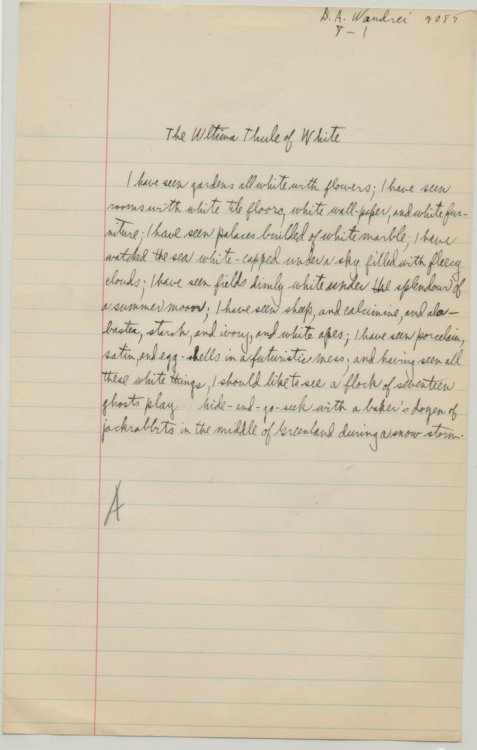 D. A. Wandrei 2085
T-1
The Ultima Thule of White
I have seen gardens all white with flowers; I have seen
rooms with white tile floors, white wall-paper, and white fur-
niture; I have seen palaces builded of white marble; I have
watched the sea white-capped under a sky filled with fleecy
clouds; I have seen fields dimly white under the splendour of
a summer moon; I have seen sheep, and calcimine, and ala-
baster, starch, and ivory, and white apes; I have seen porcelain,
satin, and egg-shells in a futuristic mess; and having seen all
these white things, I should like to see a flock of seventeen
ghosts play hide-and-go-seek with a baker's dozen of
jackrabbits in the middle of Greenland during a snow storm.
A